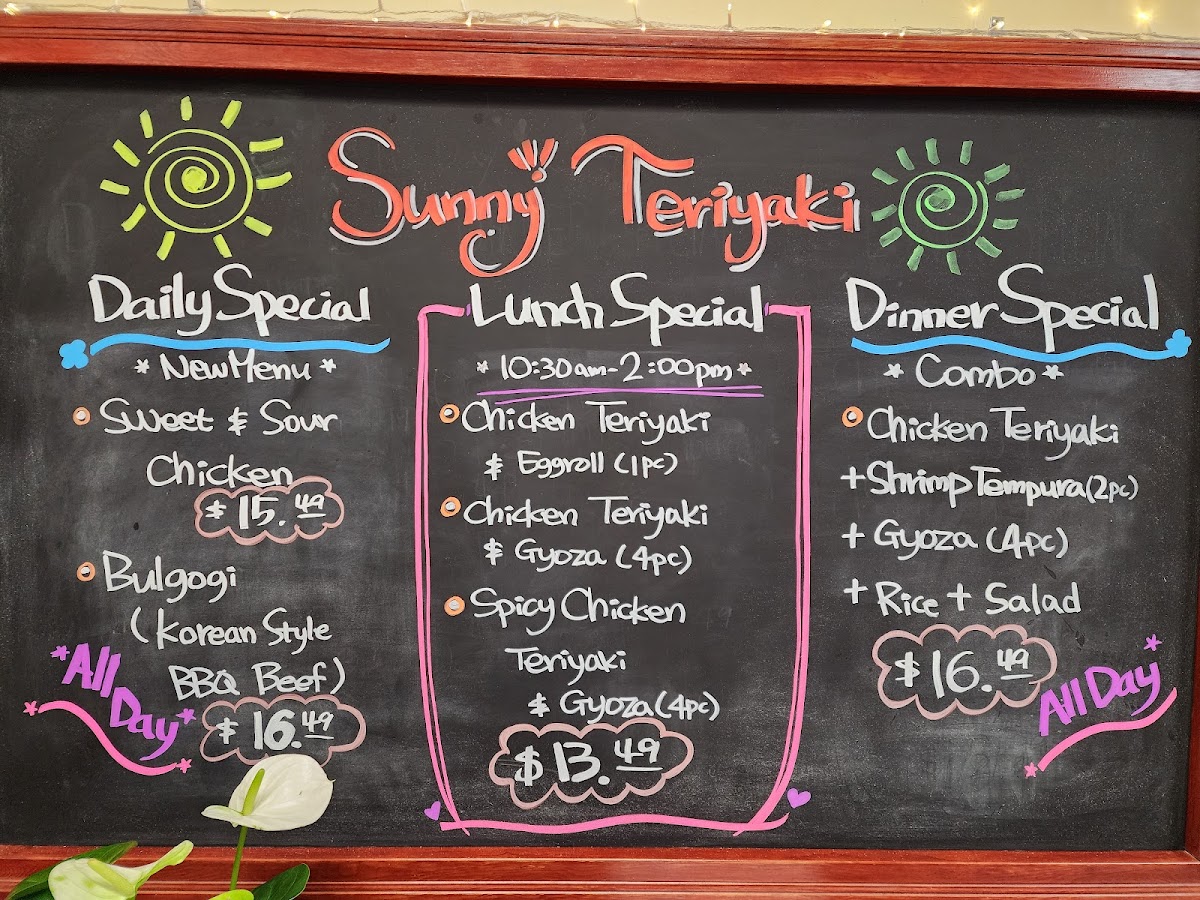 Sunny Teriyaki
Daily Special
* New Menu *
Sweet & Sour
Chicken
$15.49
Bulgogi
(Korean Style
BBQ Beef)
$16.49
*All
Day*
Lunch Special
* 10:30am-2:00pm *
Chicken Teriyaki
& Eggroll (1pc)
Chicken Teriyaki
& Gyoza (4pc)
Spicy Chicken
Teriyaki
& Gyoza (4pc)
$13.49
Dinner Special
* Combo *
Chicken Teriyaki
+ Shrimp Tempura (2pc)
+ Gyoza (4pc)
+ Rice + Salad
$16.49
All Day